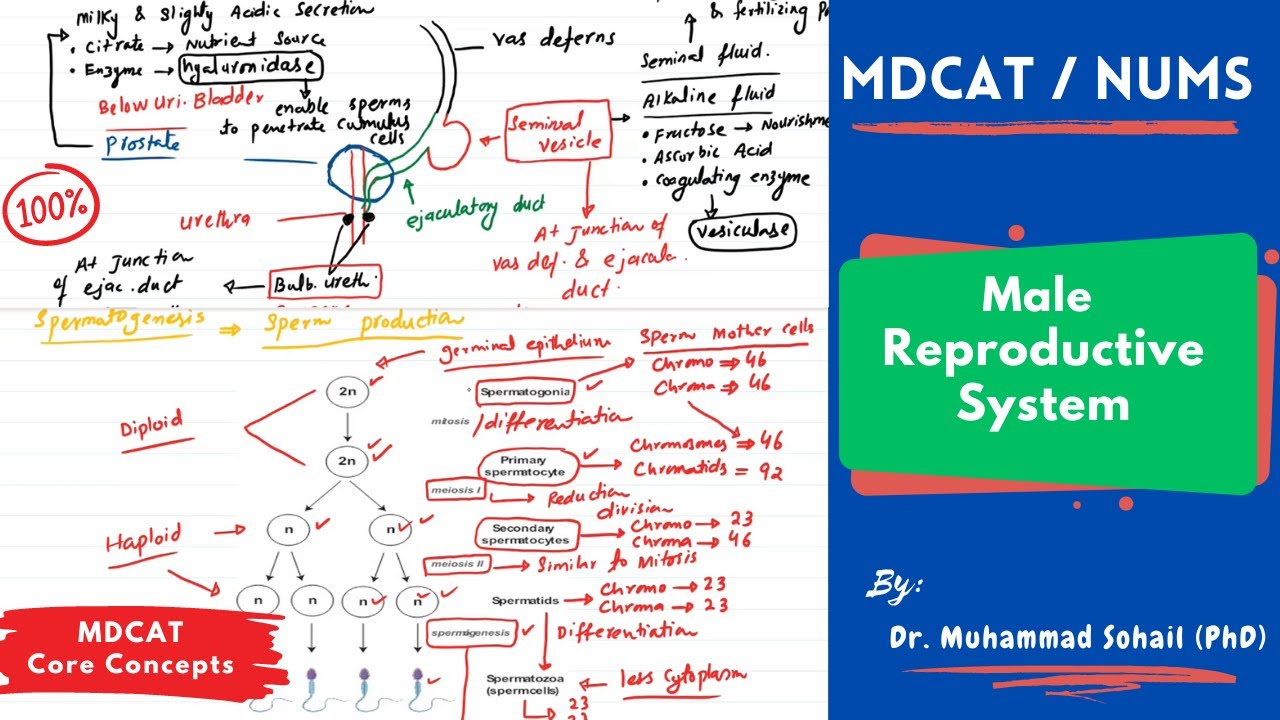 milky & Slighty Acidic Secretion
• Citrate → Nutrient Source
• Enzyme → hyaluronidase
Below Uri. Bladder
enable sperms
to penetrate cumulus
cells
Prostate
100%
urethra
At Junction
of ejac. duct
Bulb. ureth.
vas deferns
Seminal
vesicle
ejaculatory duct
At Junction of
vas def. & ejacula.
duct.
& fertilizing
Seminal fluid.
Alkaline fluid
• Fructose → Nourishme
• Ascorbic Acid
• Coagulating enzyme
vesiculase
Spermatogenesis ⇒ Sperm production
germinal epithelium
Sperm Mother cells
Chromo ⇒ 46
Chroma ⇒ 46
2n
Spermatogonia
mitosis /differentiation
Diploid
2n
Primary
spermatocyte
Chromosomes ⇒ 46
Chromatids = 92
meiosis I
Reduction
division
Haploid
n n
Secondary
spermatocytes
Chromo → 23
Chroma → 46
meiosis II → Similar to Mitosis
n n n n
Spermatids
Chromo → 23
Chroma → 23
spermiogenesis
Differentiation
Spermatozoa
(spermcells)
less cytoplasm
23
MDCAT
Core Concepts
MDCAT / NUMS
Male
Reproductive
System
By:
Dr. Muhammad Sohail (PhD)